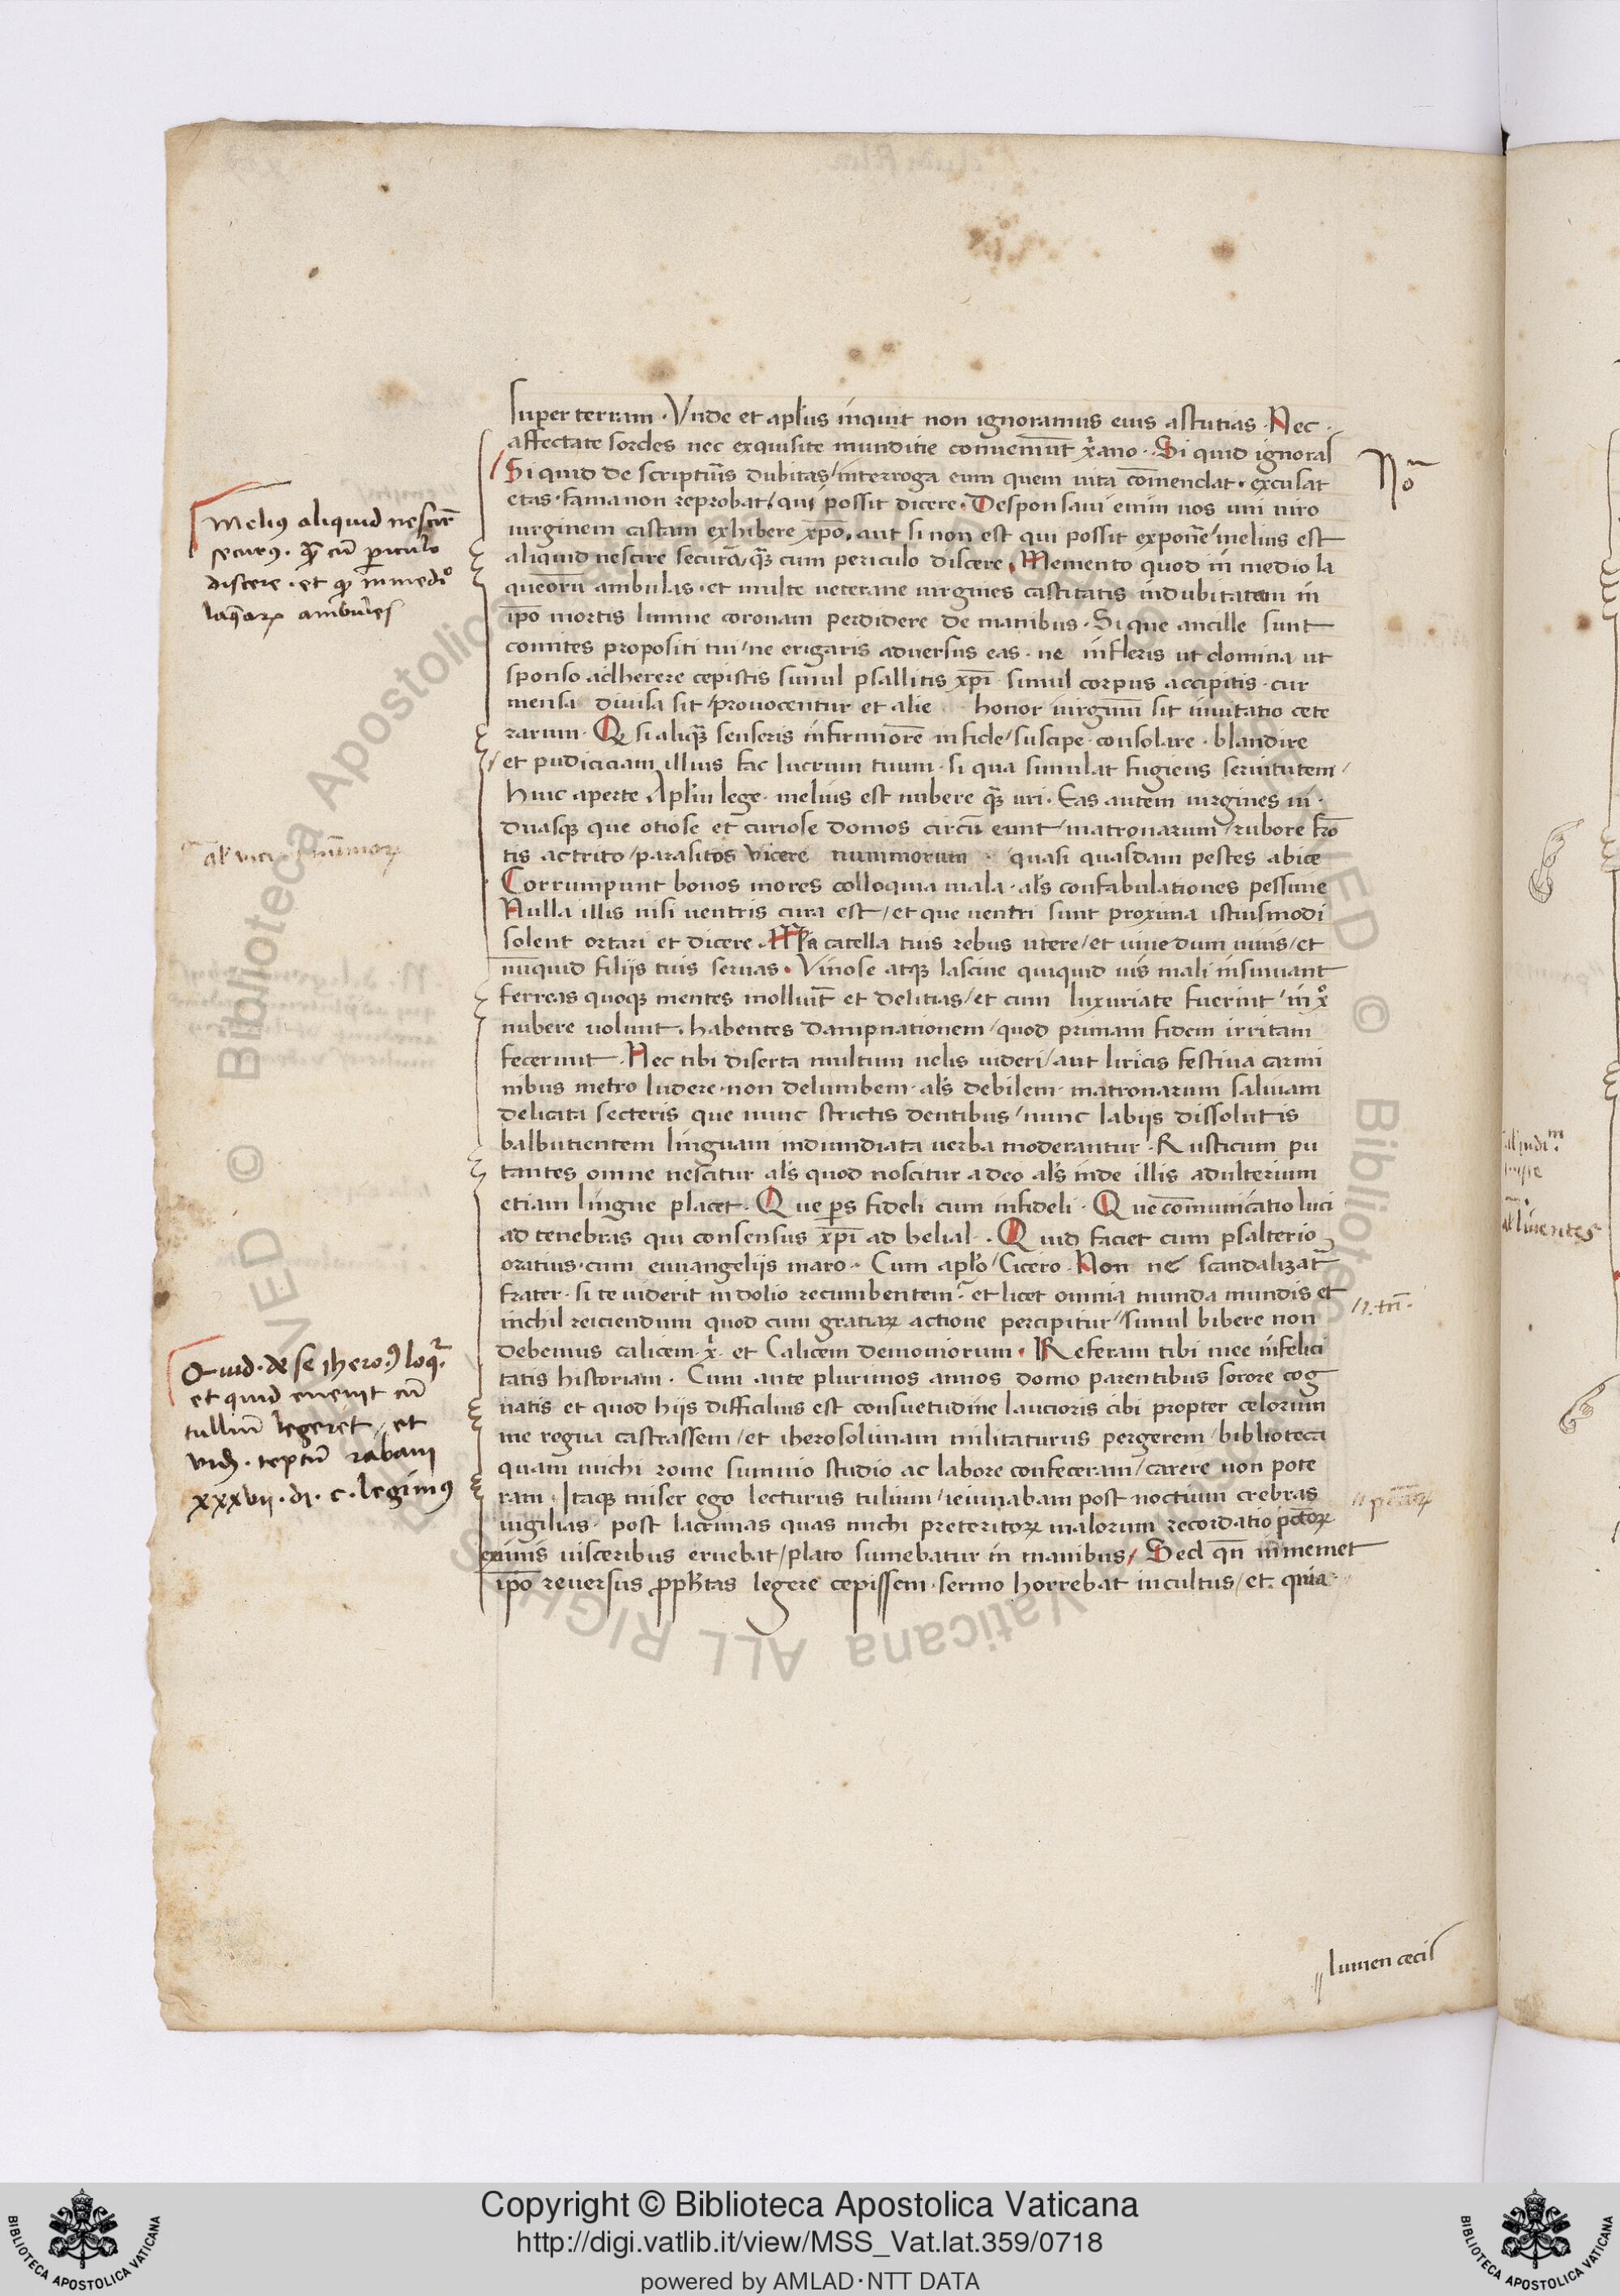 super terram · Vnde et apl'us inquit non ignoramus eius astutias · Nec
affectate sordes nec exquisite munditie conueniunt xr̄ano · Si quid ignoras
Si quid de scripturis dubitas / interroga eum quem uita cōmendat · excusat
etas · fama non reprobat / qui possit dicere · Desponsaui enim uos uni uiro
uirginem castam exhibere xp̄o · aut si non est qui possit exponē / melius est
aliquid nescire securā / quā cum periculo discere · Memento quod in medio la
queorū ambulas · et multe ueterane uirgines castitatis indubitatam in
ip̄o mortis limine coronam perdidere de manibus · Si que ancille sunt
comites propositi tui / ne erigaris aduersus eas · ne infleris ut domina / ut
sponso adherere cepistis simul psallitis xp̄i simul corpus accipitis · cur
mensa diuisa sit / prouocentur et alie honor uirginū sit inuitatio cete
rarum · Q si aliquā senseris infirmiorē in fide / suscipe · consolare · blandire
et pudiciciam illius fac lucrum tuum · si qua simulat fugiens seruitutem /
huic aperte Apl'm lege · melius est nubere quā uri · Eas autem uirgines ui ·
duasq; que otiose et curiose domos circū eunt / matronarum / rubore frō
tis actrito / parasitos vicere nummorum · quasi quasdam pestes abice
Corrumpunt bonos mores colloquia mala · al's confabulationes pessime
Nulla illis nisi uentris cura est / et que uentri sunt proxima istiusmodi
solent ortari et dicere · Mi catella tuis rebus utere / et uiue dum uiuis / et
nunquid filijs tuis seruas · Vinose atq; lasciue quiquid uis mali insinuant
ferreas quoq; mentes molliūt et delitias / et cum luxuriate fuerint / in xº
nubere uolunt · habentes dampnationem / quod primam fidem irritam
fecerunt · Nec tibi diserta multum uelis uideri / aut liricis festiua carmi
nibus metro ludere · non delumbem · al's debilem · matronarum saluiam
delicata secteris que nunc strictis dentibus / nunc labijs dissolutis
balbutientem linguam indimidiata uerba moderantur · Rusticum pu
tantes omne nescitur al's quod noscitur adeo al's inde illis adulterium
etiam lingue placet · Que ps fideli cum infideli · Que cōmunicatio luci
ad tenebras qui consensus xp̄i ad belial · Quid faciet cum psalterio
oratius · cum euuangelijs maro · Cum aplo / Cicero · Non ne scandalizat̄
frater · si te uiderit in dolio recumbentem · et licet omnia munda mundis et
inchil reiciendum quod cum gratiaꝝ actione percipitur / simul bibere non
debemus calicem · x̄ · et Calicem demoniorum · Referam tibi mee infelici
tatis historiam · Cum ante plurimos annos domo parentibus sorore cog
natis et quod hijs difficilius est consuetudine laucioris cibi propter celorum
me regna castrassem / et iherosolimam militaturus pergerem / biblioteca
quam michi rome summo studio ac labore confeceram / carere non pote
ram · Itaq; miser ego lecturus tulium / ieiunabam post noctium crebras
uigilias · post lacrimas quas michi preteritoꝝ malorum recordatio pc̄toꝝ
eximis uisceribus eruebat / plato sumebatur in manibus / Sed qn̄ in memet
ip̄o reuersus ꝓph'tas legere cepissem · sermo horrebat incultus / et quia
Noᵃ
Meliꝰ aliquid nescire
securꝰ · quā cū periculo
discere · et qꝫ in mediº
laqueaꝝ ambules
Quid · de se ihero · 9 loqr̄
et quid euenit cū
tulliū legeret / et
vid · teptū rabani
xxxvij · di · c · legimꝰ
// · tn̄ ·
lumen cecis
Copyright © Biblioteca Apostolica Vaticana
http://digi.vatlib.it/view/MSS_Vat.lat.359/0718
powered by AMLAD·NTT DATA
BIBLIOTECA APOSTOLICA VATICANA
BIBLIOTECA APOSTOLICA VATICANA